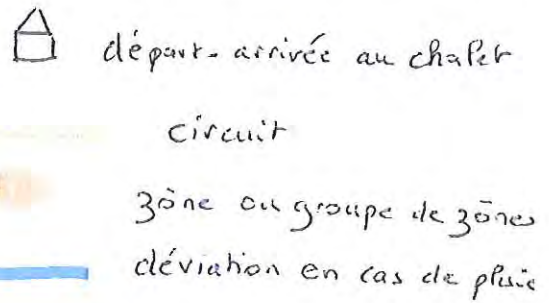 départ-arrivée au chalet
circuit
zône ou groupe de zônes
déviation en cas de pluie